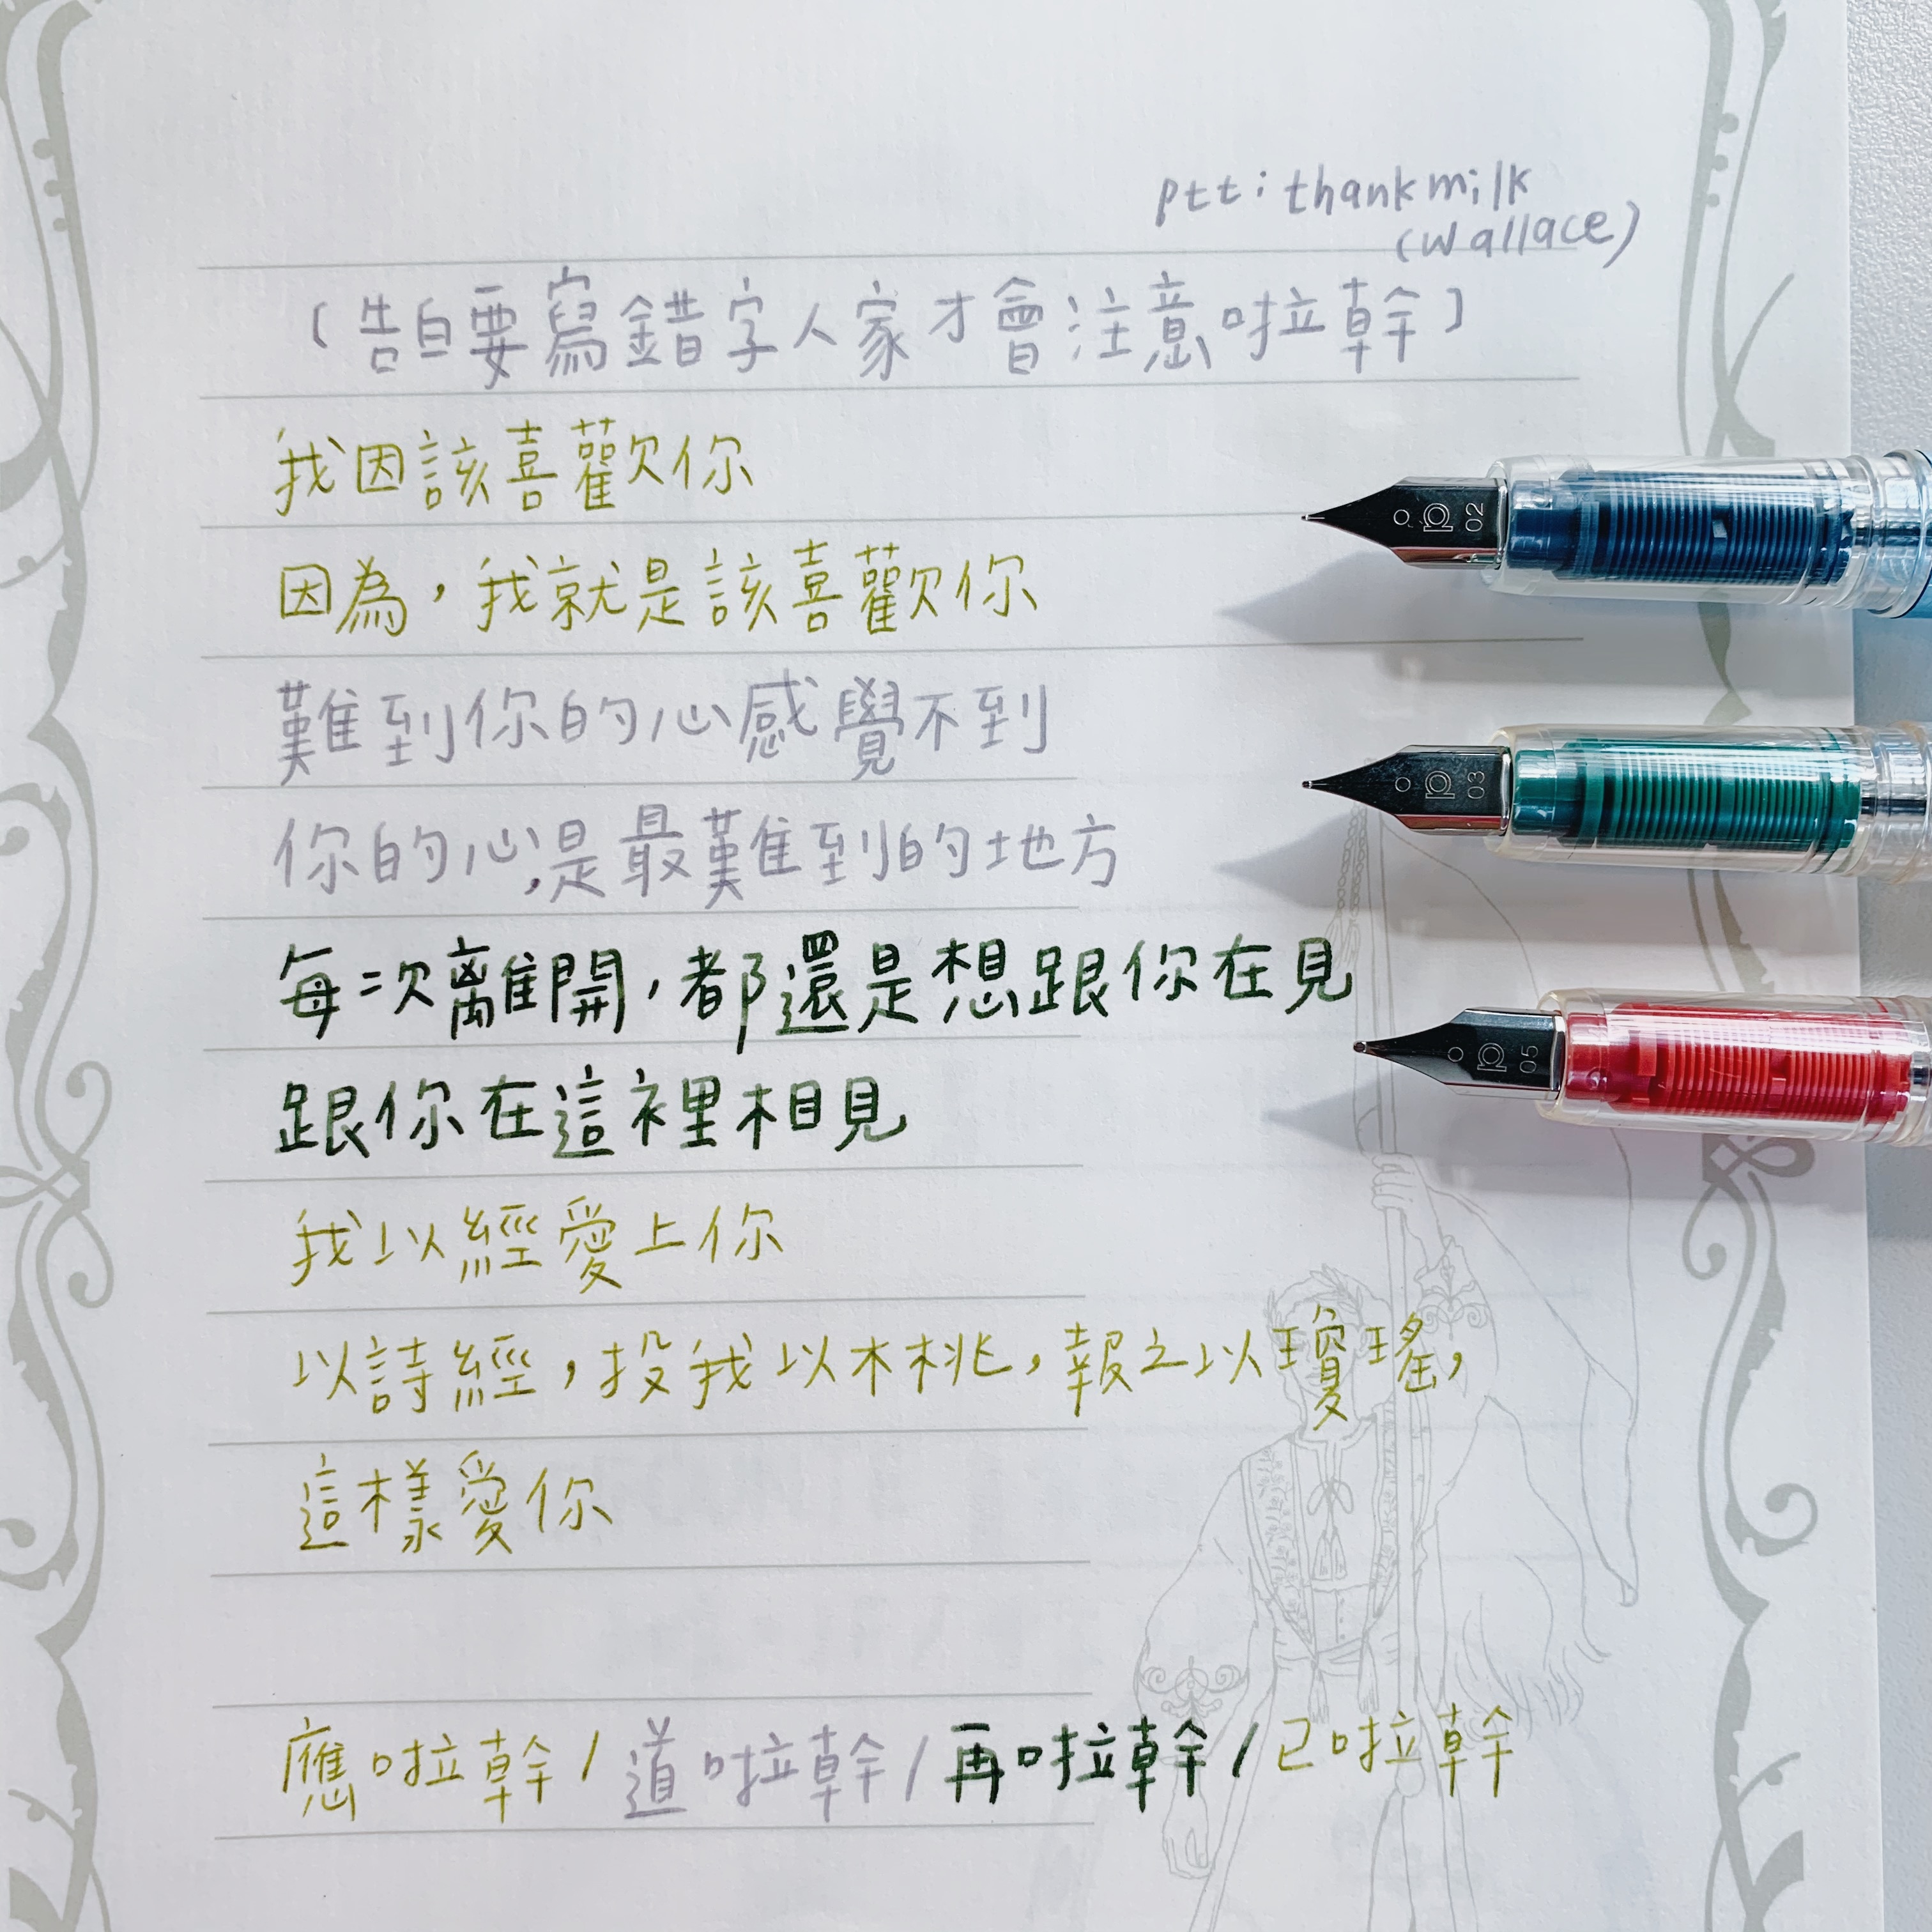 ptt：thankmilk
(Wallace)
〔告白要寫錯字人家才會注意啦幹〕
我因該喜歡你
因為，我就是該喜歡你
難到你的心感覺不到
你的心,是最難到的地方
每次離開，都還是想跟你在見
跟你在這裡相見
我以經愛上你
以詩經，投我以木桃，報之以瓊瑤，
這樣愛你
應啦幹/道啦幹/再啦幹/已啦幹
02
03
05